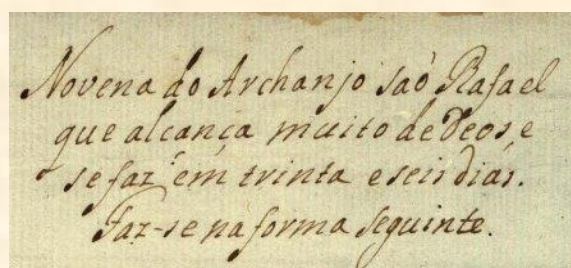 Novena do Archanjo saõ Rafael
que alcança muito de Deos, e
se faz em trinta e seis dias.
Faz-se na forma seguinte.